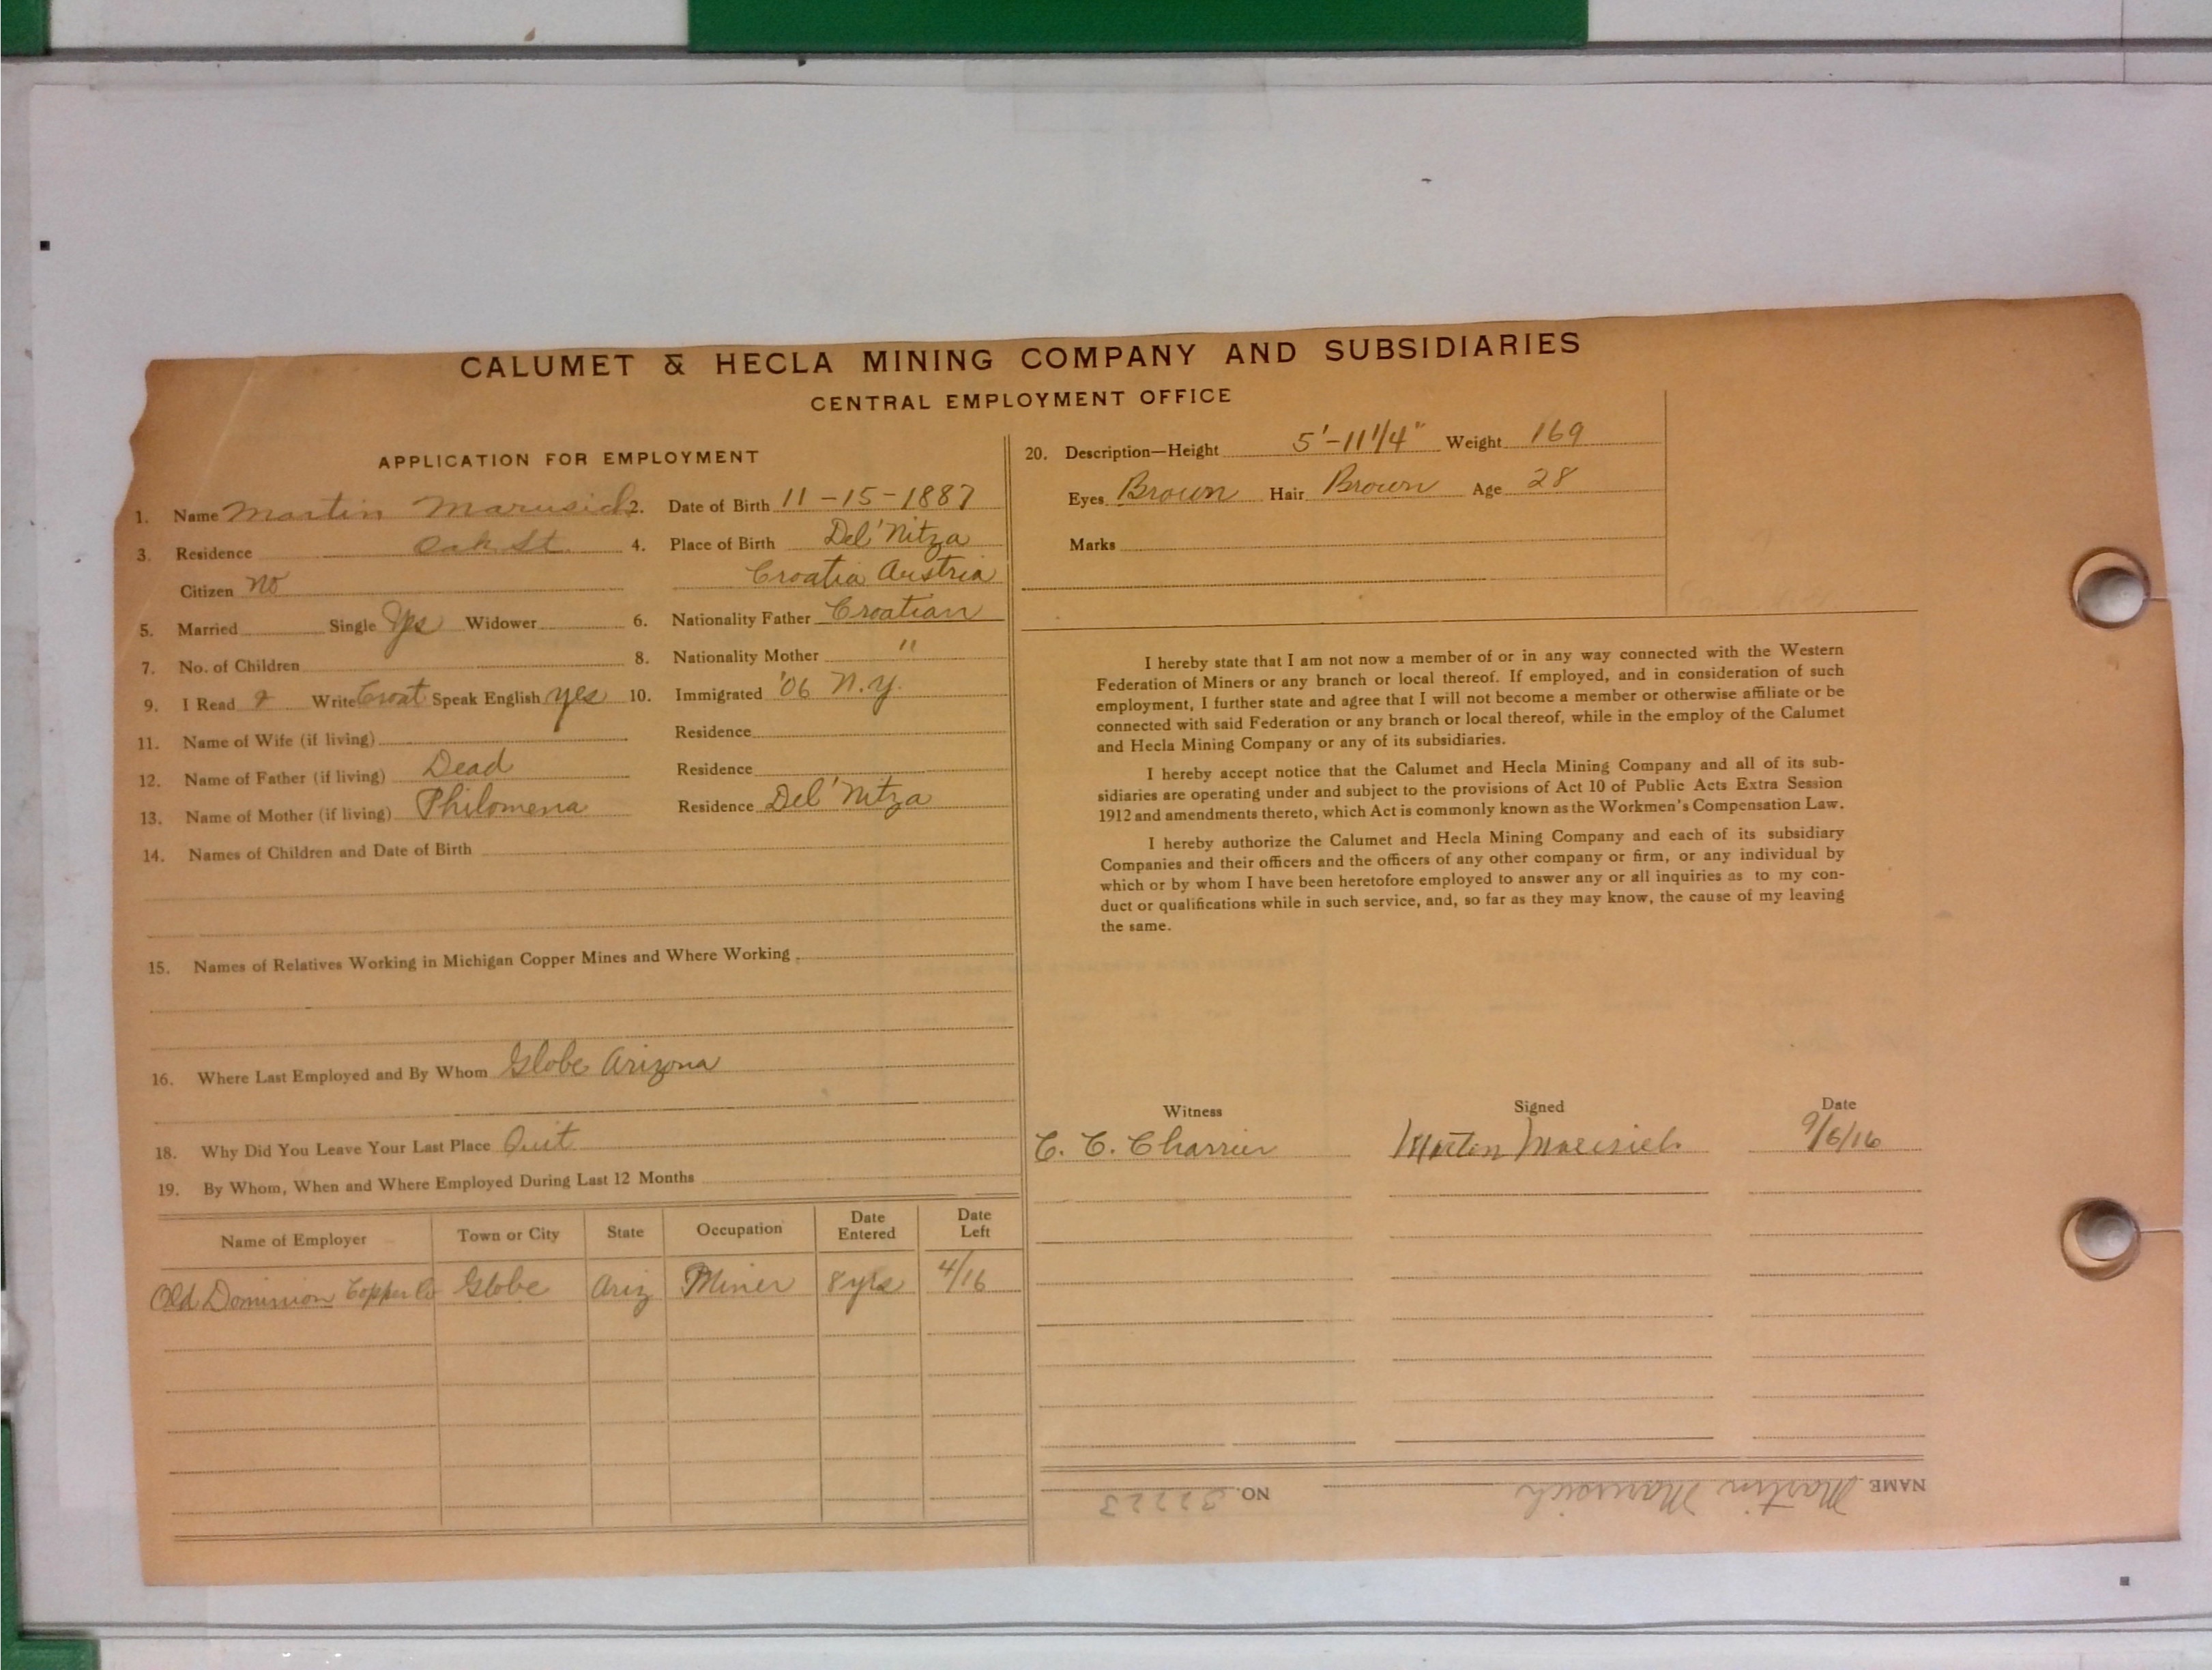 CALUMET & HECLA MINING COMPANY AND SUBSIDIARIES
CENTRAL EMPLOYMENT OFFICE
APPLICATION FOR EMPLOYMENT
1. Name Martin Marusich 2. Date of Birth 11-15-1887
3. Residence Oak St. 4. Place of Birth Del'Nitza
Citizen No Croatia Austria
5. Married Single Yes Widower 6. Nationality Father Croatian
7. No. of Children 8. Nationality Mother "
9. I Read & Write Croat Speak English yes 10. Immigrated '06 N.Y.
11. Name of Wife (if living) Residence
12. Name of Father (if living) Dead Residence
13. Name of Mother (if living) Philomena Residence Del'Nitza
14. Names of Children and Date of Birth
15. Names of Relatives Working in Michigan Copper Mines and Where Working
16. Where Last Employed and By Whom Globe Arizona
18. Why Did You Leave Your Last Place Quit
19. By Whom, When and Where Employed During Last 12 Months
Name of Employer Town or City State Occupation Date Entered Date Left
Old Dominion Copper Co Globe Ariz Miner 8 yrs 4/16
20. Description—Height 5'-11 1/4" Weight 169
Eyes Brown Hair Brown Age 28
Marks
I hereby state that I am not now a member of or in any way connected with the Western
Federation of Miners or any branch or local thereof. If employed, and in consideration of such
employment, I further state and agree that I will not become a member or otherwise affiliate or be
connected with said Federation or any branch or local thereof, while in the employ of the Calumet
and Hecla Mining Company or any of its subsidiaries.
I hereby accept notice that the Calumet and Hecla Mining Company and all of its sub-
sidiaries are operating under and subject to the provisions of Act 10 of Public Acts Extra Session
1912 and amendments thereto, which Act is commonly known as the Workmen's Compensation Law.
I hereby authorize the Calumet and Hecla Mining Company and each of its subsidiary
Companies and their officers and the officers of any other company or firm, or any individual by
which or by whom I have been heretofore employed to answer any or all inquiries as to my con-
duct or qualifications while in such service, and, so far as they may know, the cause of my leaving
the same.
Witness Signed Date
C. C. Charrier Martin Marusich 9/6/16
NAME Martin Marusich NO. 22223